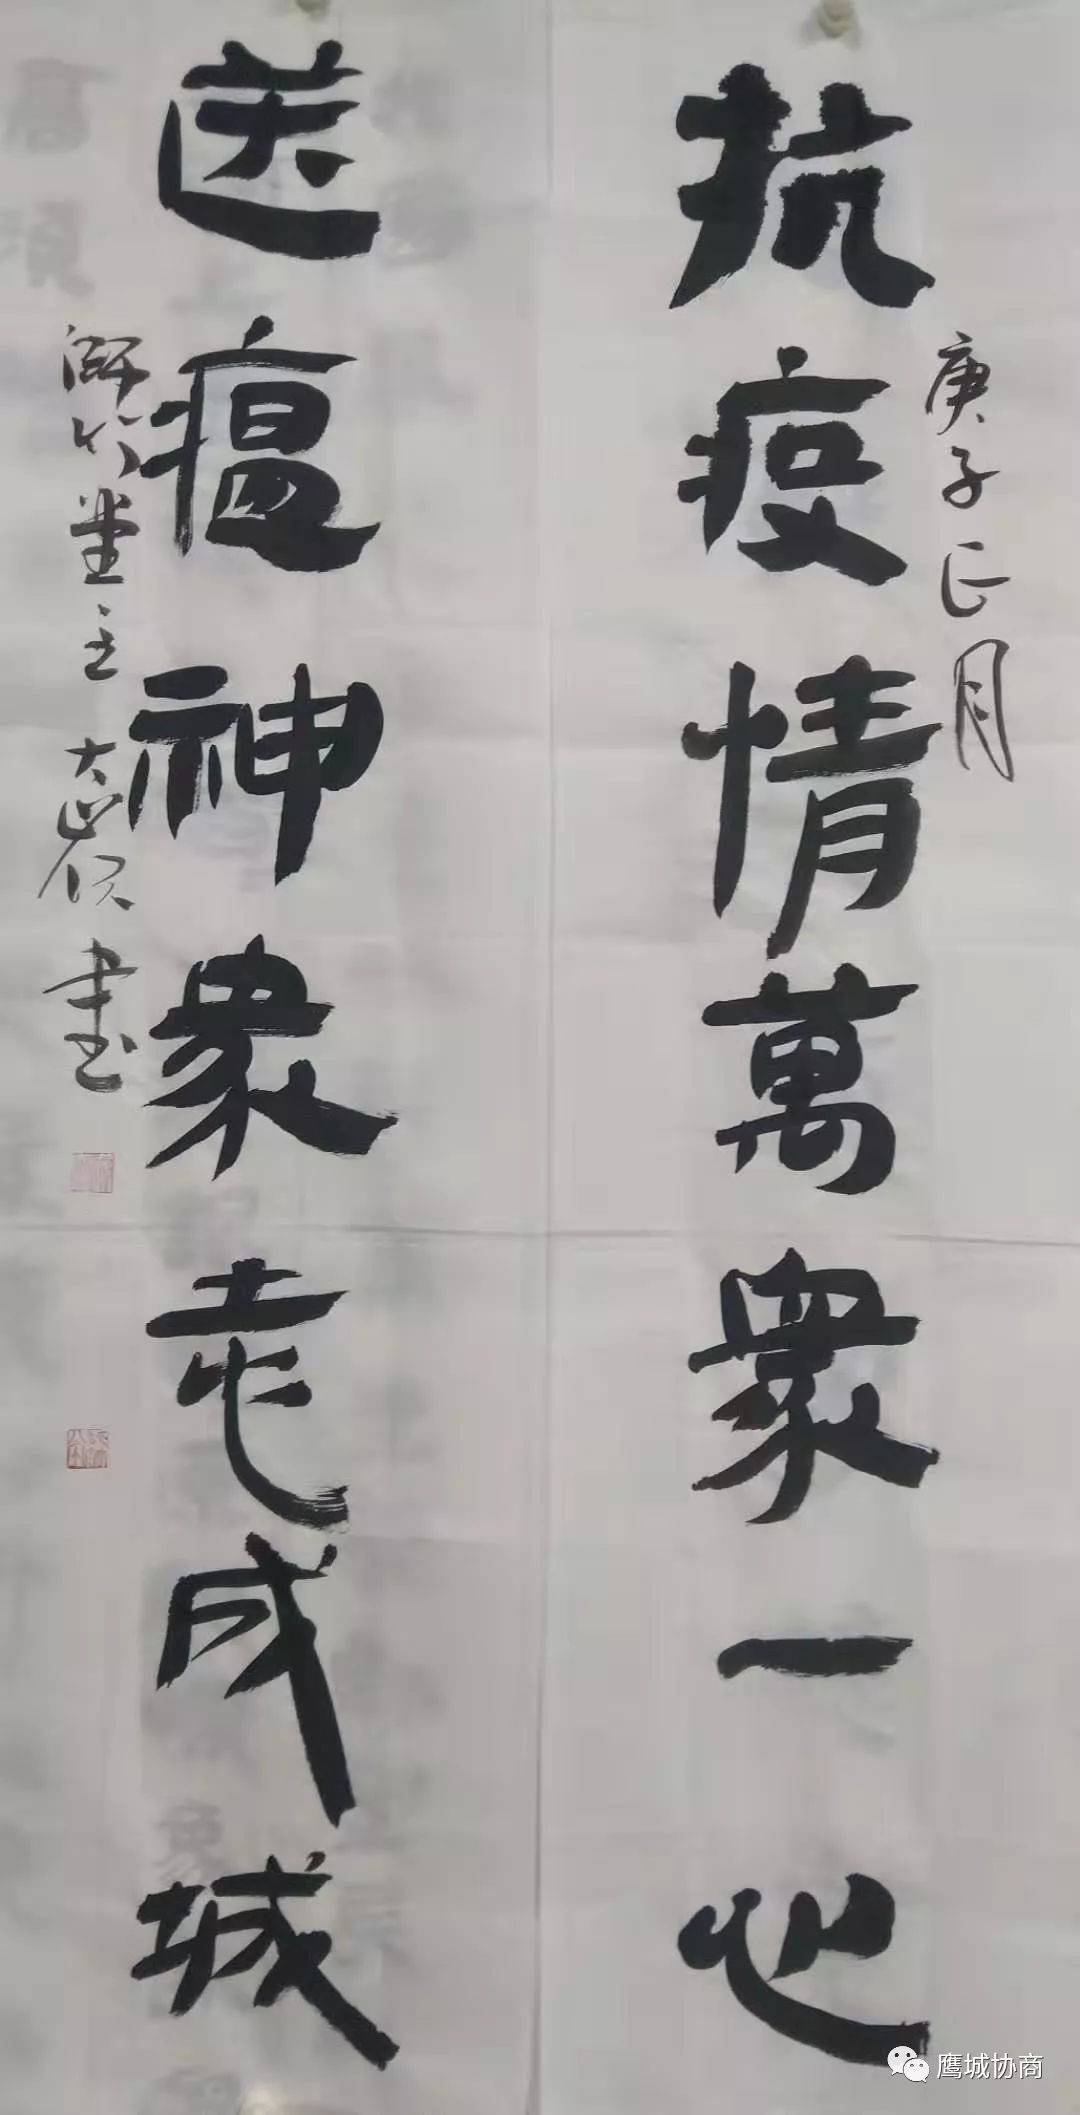 庚子正月
抗疫情萬衆一心
送瘟神衆志成城
竹堂主 大 书
鹰城协商